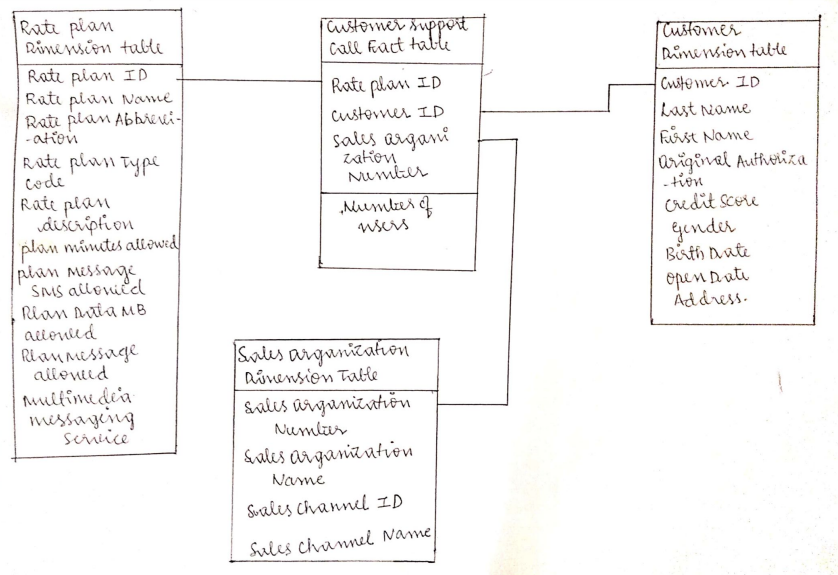 Rate plan
Dimension table
Rate plan ID
Rate plan Name
Rate plan Abbrevi-
-ation
Rate plan Type
Code
Rate plan
description
plan minutes allowed
plan Message
SMS allowed
Plan Data MB
allowed
Plan Message
allowed
Multimedia
messaging
Service
Customer support
Call Fact table
Rate plan ID
Customer ID
Sales organi
zation
Number
Number of
users
Customer
Dimension table
Customer ID
Last Name
First Name
Original Authoriza
-tion
Credit Score
Gender
Birth Date
Open Date
Address.
Sales Organization
Dimension Table
Sales Organization
Number
Sales Organization
Name
Sales Channel ID
Sales Channel Name